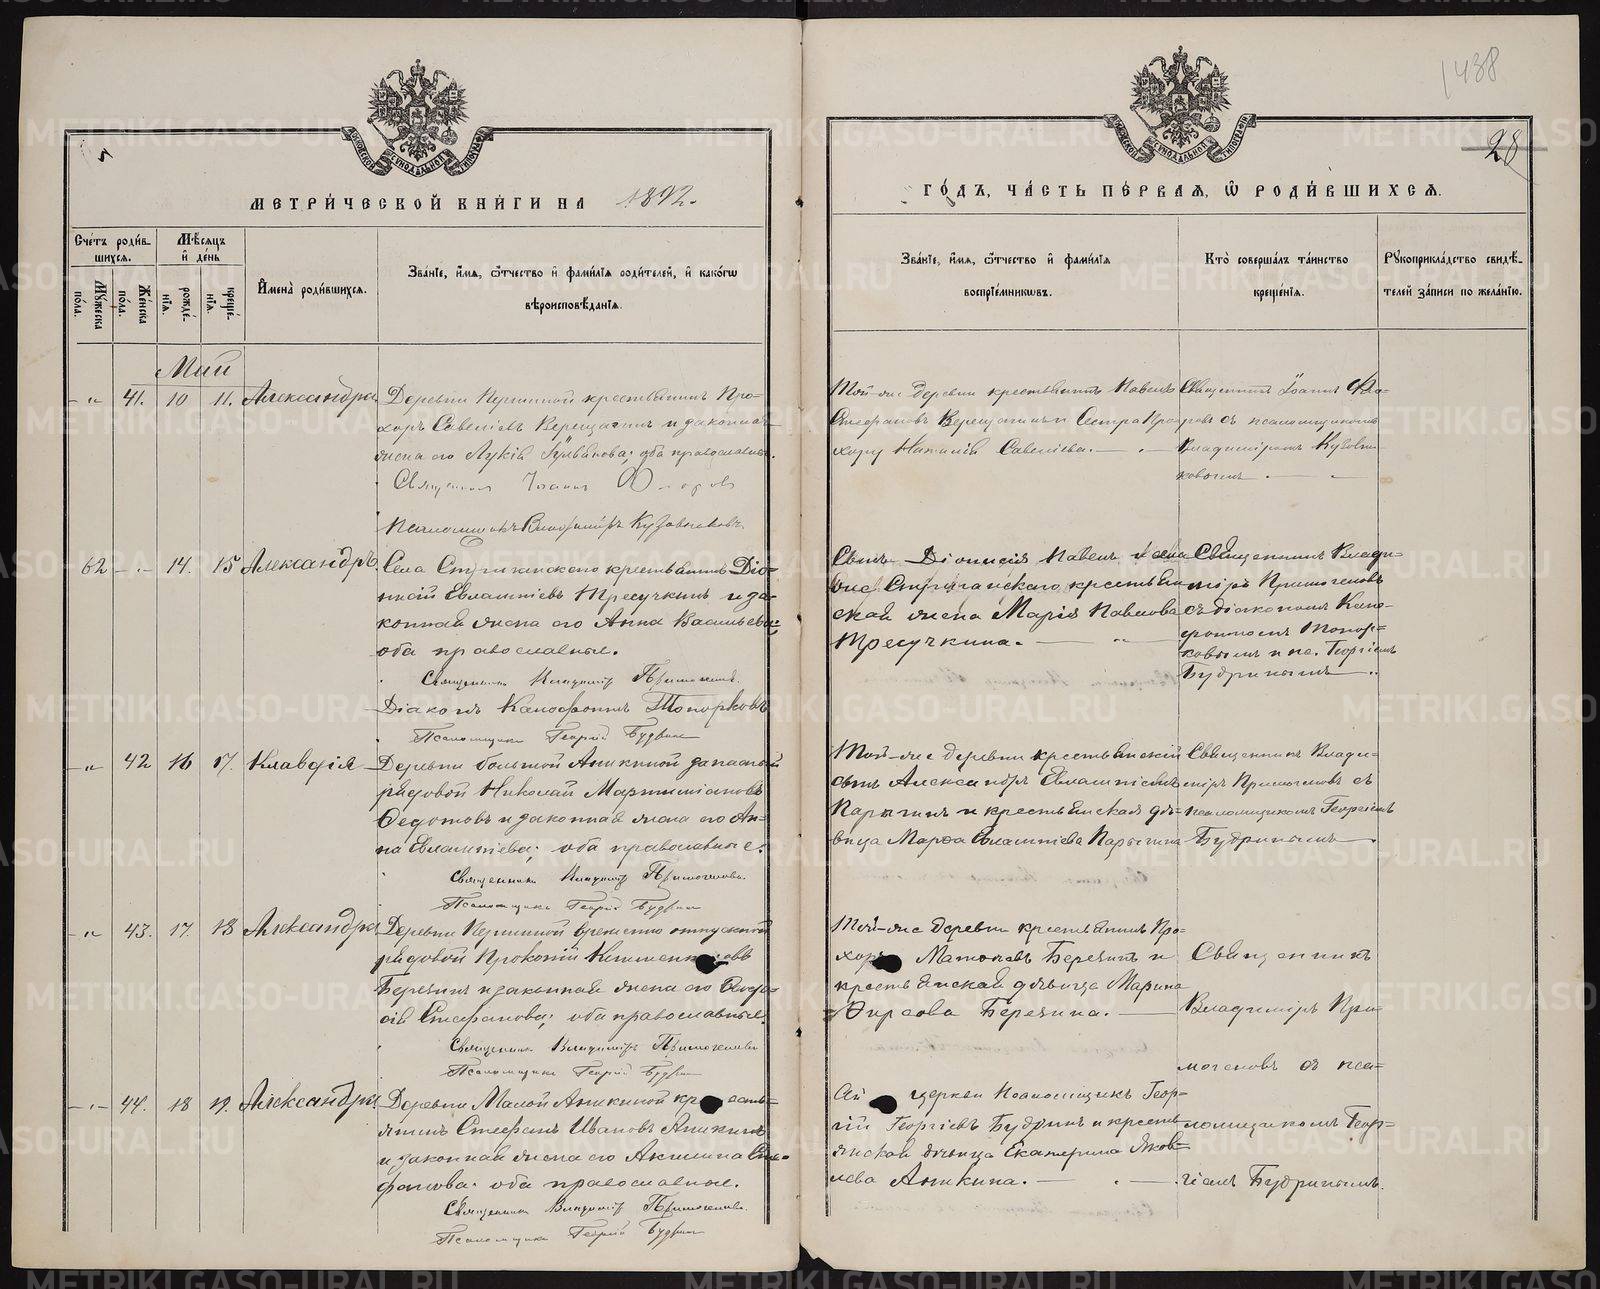 1438
28
МЕТРИ́ЧЕСКОЙ КНИ́ГИ НА 1892.
ГО́ДЪ, ЧА́СТЬ ПЕ́РВАЯ, Ѡ РОДИ́ВШИХСѦ.
Сче́тъ роди́в-
шихся.
Мѣ́сяцъ
и҆ де́нь
Му́жеска по́ла.
Же́нска по́ла.
рожде́-
нїѧ.
креще́-
нїѧ.
И҆мена̀ роди́вшихся.
Зва́нїе, и҆́мѧ, ѻ҆́тчество и҆ фами́лїѧ роди́телей, и҆ како́гѡ
вѣроисповѣ́данїѧ.
Зва́нїе, и҆́мѧ, ѻ҆́тчество и҆ фами́лїѧ
воспрїе́мникѡвъ.
Кто̀ соверша́лъ та́инство
креще́нїѧ.
Рꙋкоприкла́дство свидѣ́-
телей за́писи по жела́нїю.
Май
- „ 41. 10 11. Александра
Деревни крестьянинъ Про-
хоръ Савелiевъ Верещагинъ и законная
жена его Лукiя оба православные.
Священникъ Iоаннъ Флоровъ
Псаломщикъ Владимiръ Кузовниковъ.
Той-же деревни крестьянинъ Павелъ
Стефановъ Верещагинъ и сестра Про-
хору Наталiя Савелiева.
Священникъ Iоаннъ Фло-
ровъ съ псаломщикомъ
Владимiромъ Кузовни-
ковымъ
62 - „ - 14. 15 Александръ
Села крестьянинъ Дiо-
нисiй Евлампiевъ Тресучкинъ и за-
конная жена его Анна Васильева;
оба православные.
Священникъ Владимiръ Примогеновъ.
Дiаконъ Ксенофонтъ Топорковъ
Псаломщикъ Георгiй Будринъ
Сынъ Дiонисiя Павелъ и села
крестьян-
ская жена Марiя Павлова
Тресучкина.
Священникъ Влади-
мiръ Примогеновъ
съ дiакономъ Ксено-
фонтомъ Топор-
ковымъ и пс. Георгiемъ
Будринымъ
- „ 42 16 17. Клавдiя
Деревни большой Аникиной запасный
рядовой Николай Мартимiановъ
Ѳедотовъ и законная жена его Ан-
на Евлампiева; оба православные.
Священникъ Владимiръ Примогеновъ.
Псаломщикъ Георгiй Будринъ
Той-же деревни крестьянскiй
сынъ Александръ Евлампiевъ
Парыгинъ и крестьянская дѣ-
вица Марѳа Евлампiева Парыгина
Священникъ Влади-
мiръ Примогеновъ съ
псаломщикомъ Георгiемъ
Будринымъ
- „ 43. 17. 18 Александра
Деревни временно отпускной
рядовой Прокопiй
Березинъ и законная жена его Ѳеодо-
сiя Стефанова; оба православные.
Священникъ Владимiръ Примогеновъ
Псаломщикъ Георгiй Будринъ
Той-же деревни крестьянинъ Про-
хоръ Березинъ и
крестьянская дѣвица Марина
Ѳирсова Березина.
Священникъ
Владимiръ При-
могеновъ съ пса-
ломщикомъ Геор-
гiемъ Будринымъ.
- „ - 44. 18 19. Александра
Деревни Малой Аникиной кресть-
янинъ Стефанъ Ивановъ Аникинъ
и законная жена его Акилина Сте-
фанова; оба православные.
Священникъ Владимiръ Примогеновъ.
Псаломщикъ Георгiй Будринъ
церкви Псаломщикъ Геор-
гiй Георгiевъ Будринъ и кресть-
янская дѣвица Екатерина Яков-
лева Аникина.
METRIKI.GASO-URAL.RU